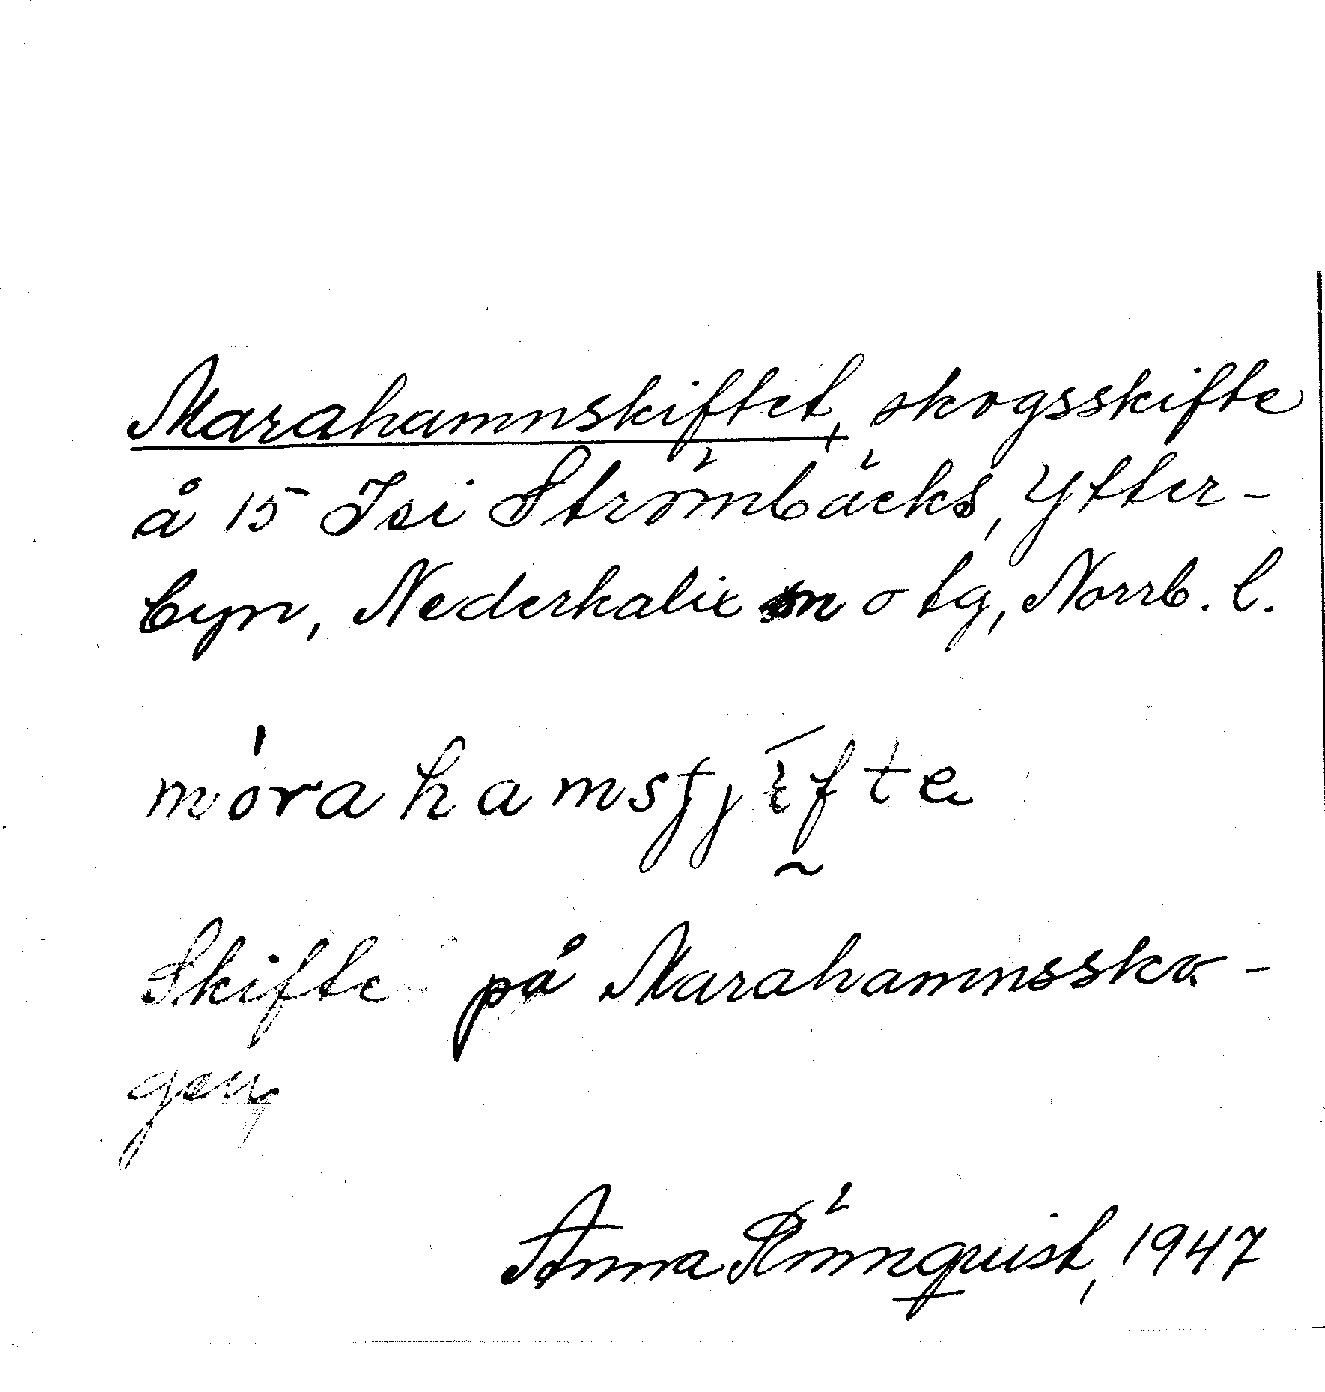 Marahamnskiftet, skogsskifte
å 15 Isi Strömbäcks, Ytter-
byn, Nederkalix sn o tg, Norrb. l.
mórahamsʃjīfte
Skifte på Marahamnssko-
gen,
Anna Rönnquist, 1947